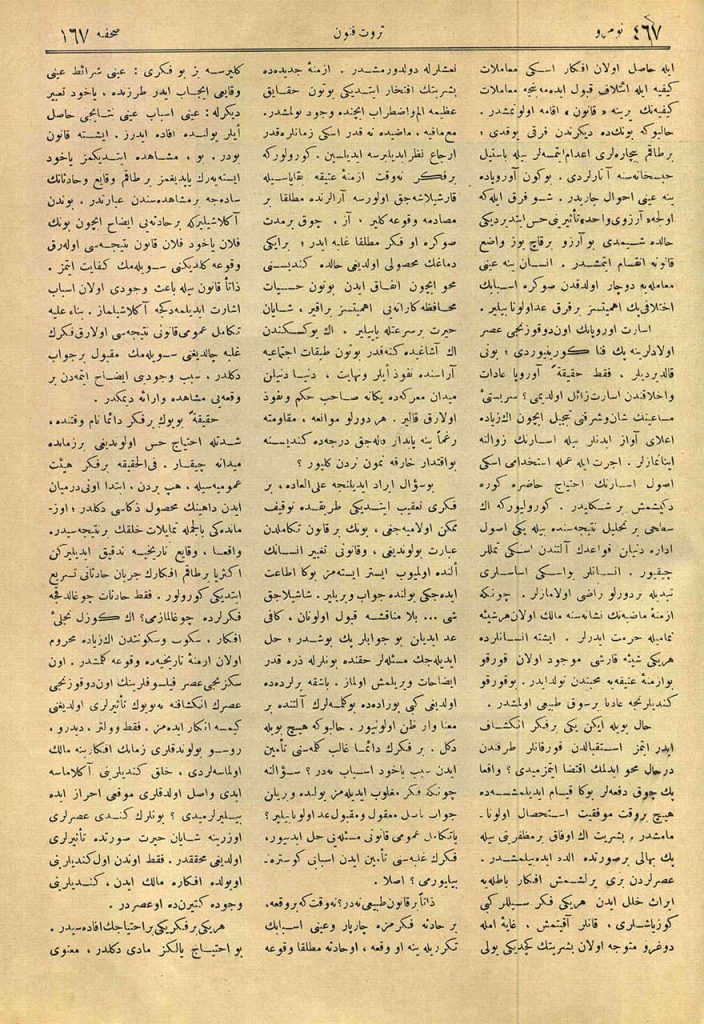 ٤٦٧ نومرو
ثروت فنون
صحفه ١٦٧
ايله حاصل اولان افكار اسكى معاملات
كيفيه ايله ائتلاف قبول ايده‌مه‌نجه معاملات
كيفيه‌نك يرينه « قانون » اقامه اولونمشدر .
حالبوكه بونك‌ده ديكرندن فرقى يوقدى ؛
برطاقم بيچاره‌لرى اعدام ايتمسه‌لر بيله باستيل
حبسخانه‌سنه آتارلردى . بوكون آوروپاده
ينه عينى احوال جاريدر . شو فرق ايله‌كه
اولجه « آرزوى واحده » تأثيرنى حس ايتديرديكى
حالده شيمدى بو آرزو برقاچ يوز واضع
قانونه انقسام ايتمشدر . انسان ينه عينى
معامله‌يه دوچار اولدقدن صوكره اسبابك
اختلافى پك اهميتسز برفرق عد اولونابيلير .
اسارت اوروپانك اون‌دوقوزنجى عصر
اولادلرينه پك فنا كورينيوردى ؛ بونى
قالديرديلر . فقط حقيقةً آوروپا عادات
و اخلاقندن اسارت زائل اولديمى ؟ سربستئ
مساعينك شان و شرفنى تبجيل ايچون اك زياده
اعلاى آواز ايدنلر بيله اسارتك زوالنه
اينانمازلر . اجرت ايله عمله استخدامى اسكى
اصول اسارتك احتياج حاضره كوره
دكيشمش بر شكليدر . كورولیوركه اك
سطحى بر تحليل نتيجه‌سنده بيله يكى اصول
اداره دنيلن قواعدك آلتندن اسكى تمللر
چيقيور . انسانلر بو اسكى اساسلرى
تبديله بردورلو راضى اولامازلر . چونكه
ازمنهٔ ماضيه‌نك نشانه‌سنه مالك اولان هرشيئه
تماميله حرمت ايدرلر . ايشته انسانلرده
هر يكى شيئه قارشى موجود اولان قورقو
بو ازمنهٔ عتيقه‌يه محبتدن تولد ايدر . بوقورقو
كنديلرنجه عادتا برسوق طبيعى اولمشدر .
حال بويله ايكن يكى برفكر انكشاف
ايدر ايتمز استقبالدن قورقانلر طرفندن
درحال محو ايدلمك اقتضا ايتمزميدى ؟ واقعا
پك چوق دفعه‌لر بوكا قيام ايدلمشسه‌ده
هيچ بروقت موفقيت استحصال اولونا-
مامشدر . بشريت اك اوفاق برمظفريتى بيله
پك بهالى برصورتده الده ايده‌بيلمشدر .
عصرلردن برى يرلشمش افكار باطله‌يه
ايراث خلل ايدن هر يكى فكر سيللر كبى
كوزياشلرى ، قانلر آقيتمش . غايهٔ امله
دوغرو متوجه اولان بشريتك كچديكى يولى
نعشلرله دولدورمشدر . ازمنهٔ جديده‌ده
بشريتك افتخار ايتديكى بوتون حقايق
عظيمه الم و اضطراب ايچنده وجود بولمشدر .
مع مافيه ، ماضيده نه قدر اسكى زمانلره قدر
ارجاع نظر ايديلیرسه ايديلسين . كورولوركه
برفكر نه‌وقت ازمنهٔ عتيقه بقاياسيله
قارشيلاشه‌جق اولورسه آرالرنده مطلقا بر
مصادمه وقوعه كلير ، آز . چوق برمدت
صوكره او فكر مطلقا غلبه ايدر ؛ برايكى
دماغك محصولى اولديغى حالده كنديسنى
محو ايچون اتفاق ايدن بوتون حسيات
محافظه‌كارانه‌يى اهميتسز براقير ، شايان
حيرت برسرعتله ياييلير . اك يوكسكدن
اك آشاغيده كنه‌قدر بوتون طبقات اجتماعيه
آراسنده نفوذ ايلر و نهايت ، دنيا دنيلن
ميدان معركه‌ده يكانه صاحب حكم و نفوذ
اولارق قالير . هر دورلو موانعه ، مقاومته
رغماً ينه پايدار قاله‌جق درجه‌ده كنديسنه
بو اقتدار خارقه نمون نردن كليور ؟
بوسؤال ايراد ايديلنجه على‌العاده ، بر
فكرى تعقيب ايتديكى طريقده توقيف
ممكن اولاميه‌جغى ، بونك برقانون تكاملدن
عبارت بولونديغى ، وقانونى تغيير انسانك
ألنده اولميوب ايستر ايسته‌مز بوكا اطاعت
ايده‌جكى يولنده جواب ويريلير . شاشيلاجق
شى ... بلا مناقشه قبول اولونان ، كافى
عد ايديلن بو جوابلر پك بوشدر ؛ حل
ايديله‌جك مسئله‌لر حقنده بونلرله ذره قدر
ايضاحات ويريلمش اولماز . باشقه يرلرده‌ده
اولديغى كبى بوراده‌ده بوكلمه‌لرك آلتنده بر
معنا وار ظن اولونيور . حالبوكه هيچ بويله
دكل . بر فكرك دائما غالب كلمه‌سنى تأمين
ايدن سبب ياخود اسباب نه‌در ؟ سؤالنه
چونكه فكر مغلوب ايديله‌مز يولنده ويريلن
جواب ناصل معقول و مقبول عد اولونابيلير ؟
ياتكامل عمومى قانونى مسئله‌نى حل ايدييور،
فكرك غلبه‌سنى تأمين ايدن اسبابى كوستره-
بيليورمى ؟ اصلا .
ذاتاً برقانون طبيعى نه‌در؟ نه‌وقت كه بروقعه،
بر حادثه فكرمزه چارپار وعينى اسبابك
تكرريله ينه او وقعه ، او حادثه مطلقا وقوعه
كليرسه بز بو فكرى : عينى شرائط عينى
وقايعى ايجاب ايدر طرزنده ، ياخود تعبير
ديكرله : عينى اسباب عينى نتايجى حاصل
أيلر يولنده افاده ايدرز . ايشته قانون
بودر . بو ، مشاهده ايتديكمز ياخود
ايسته‌يه‌رك ياپديغمز برطاقم وقايع وحادثاتك
ساده‌جه بر مشاهده‌سندن عبارتدر . بوندن
آكلاشيليركه برحادثه‌يى ايضاح ايچون بونك
فلان ياخود فلان قانون نتيجه‌سى اوله‌رق
وقوعه كلديكنى سويله‌مك كفايت ايتمز .
ذاتاً قانون بيله باعث وجودى اولان اسباب
اشارت ايديلمه‌دكجه آكلاشيلماز . بناءً عليه
تكامل عمومى قانونى نتيجه‌سى اولارق فكرك
غلبه چالديغنى سويله‌مك مقبول برجواب
دكلدر ، سبب وجودينى ايضاح ايتمه‌دن بر
وقعه‌يى مشاهده و ارائه ديمكدر .
حقيقةً بويوك برفكر دائما تام وقتنده ،
شدتله احتياج حس اولونديغى برزمانده
ميدانه چيقار . فى‌الحقيقه برفكر هيئت
عموميه‌سيله ، هپ بردن . ابتدا اونى درميان
ايدن داهينك محصول ذكاسى دكلدر ؛ اوز-
مانده‌كى بالجمله تمايلات خلقك برنتيجه‌سيدر.
واقعا ، وقايع تاريخيه تدقيق ايديليركن
اكثريا برطاقم افكارك جريان حادثاتى تسريع
ايتديكى كورولور . فقط حادثات چوغالدقجه
فكرلرده چوغالمازمى؟ اك كوزل تجلئ
افكار ، سكوب وسكونتدن اك زياده محروم
اولان ازمنهٔ تاريخيه‌ده وقوعه كلمشدر . اون
سكزنجى عصر فيلسوفلرينك اون‌دوقوزنجى
عصرك انكشافنه نه‌بويوك تأثيرلرى اولديغنى
كيمسه انكار ايده‌مز . فقط وولتر ، ديدرو ،
روسو بولوندقلرى زمانك افكارينه مالك
اولماسه‌لردى ، خلق كنديلرينى آكلاماسه
ايدى واصل اولدقلرى موقعى احراز ايده
بيليرلرميدى ؟ بونلرك كندى عصرلرى
اوزرينه شايان حيرت صورتده تأثيرلرى
اولديغى محققدر . فقط اوندن اول كنديلرينى
اويولده افكاره مالك ايدن ، كنديلرينى
وجوده كتيرن‌ده او عصردر .
هر يكى برفكر يكى بر احتياجك افاده‌سيدر .
بو احتياج يالكز مادى دكلدر ، معنوى